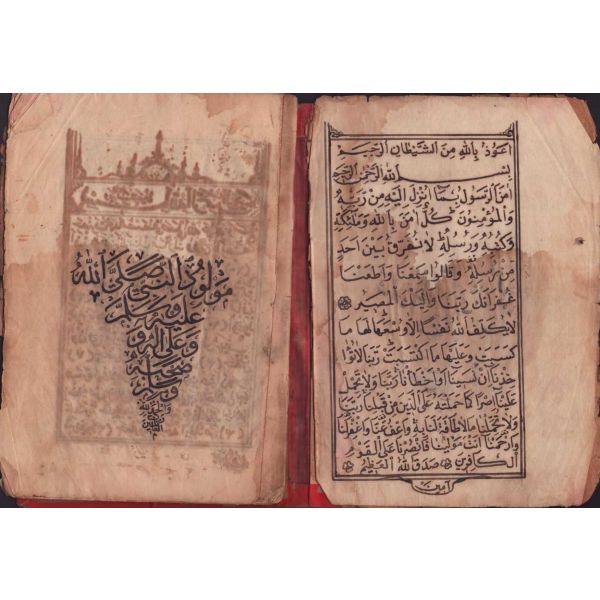 اعوذ بالله من الشيطان الرجيم
بسم الله الرحمن الرحيم
اٰمن الرسول بما انزل اليه من ربه
والمؤمنون كل امن بالله وملئكته
وكتبه ورسله لانفرق بين احد
من رسله وقالوا سمعنا واطعنا
غفرانك ربنا واليك المصير
لا يكلف الله نفسا الا وسعها لها ما
كسبت وعليها ما كتسبت ربنا لا تؤا
خذنا ان نسينا او اخطأنا ربنا ولا تحمل
علينا اصرا كما حملته على الذين من قبلنا ربنا
ولا تحملنا ما لا طاقة لنا به واعف عنا واغفر لنا
وارحمنا انت مولينا فانصرنا على القوم
الكافرين صدق الله العظيم
آمين
مولود النبى صلى الله
عليه وسلم
وعلى آله و
صحبه
وسلم